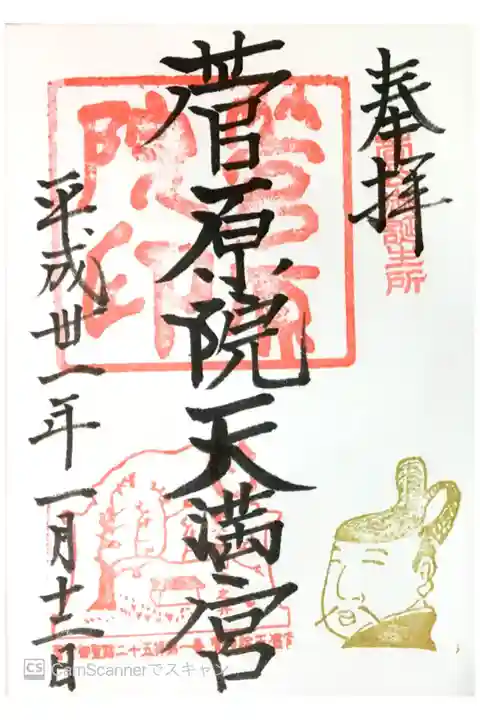 奉拝
誕生所
菅原院天満宮
平成卅一年一月十三日
CS CamScannerでスキャン